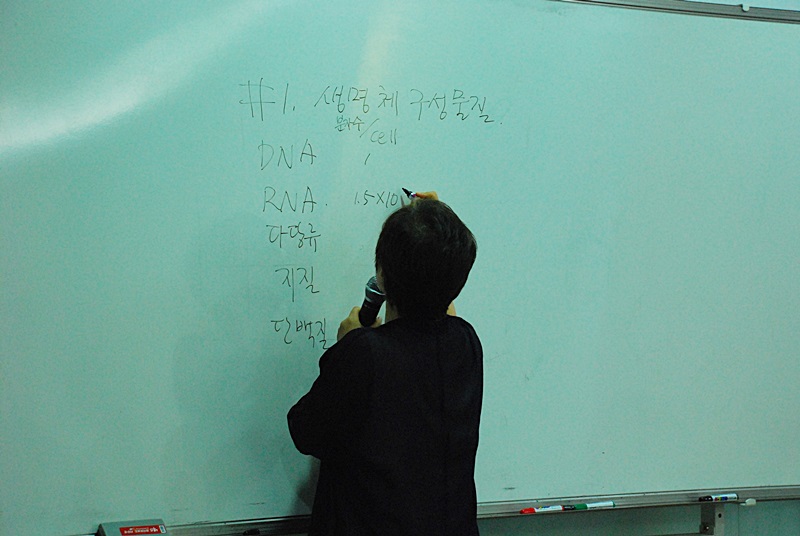 #1. 생명체 구성물질.
분자수/cell
DNA 1
RNA. 1.5×10
다당류
지질
단백질